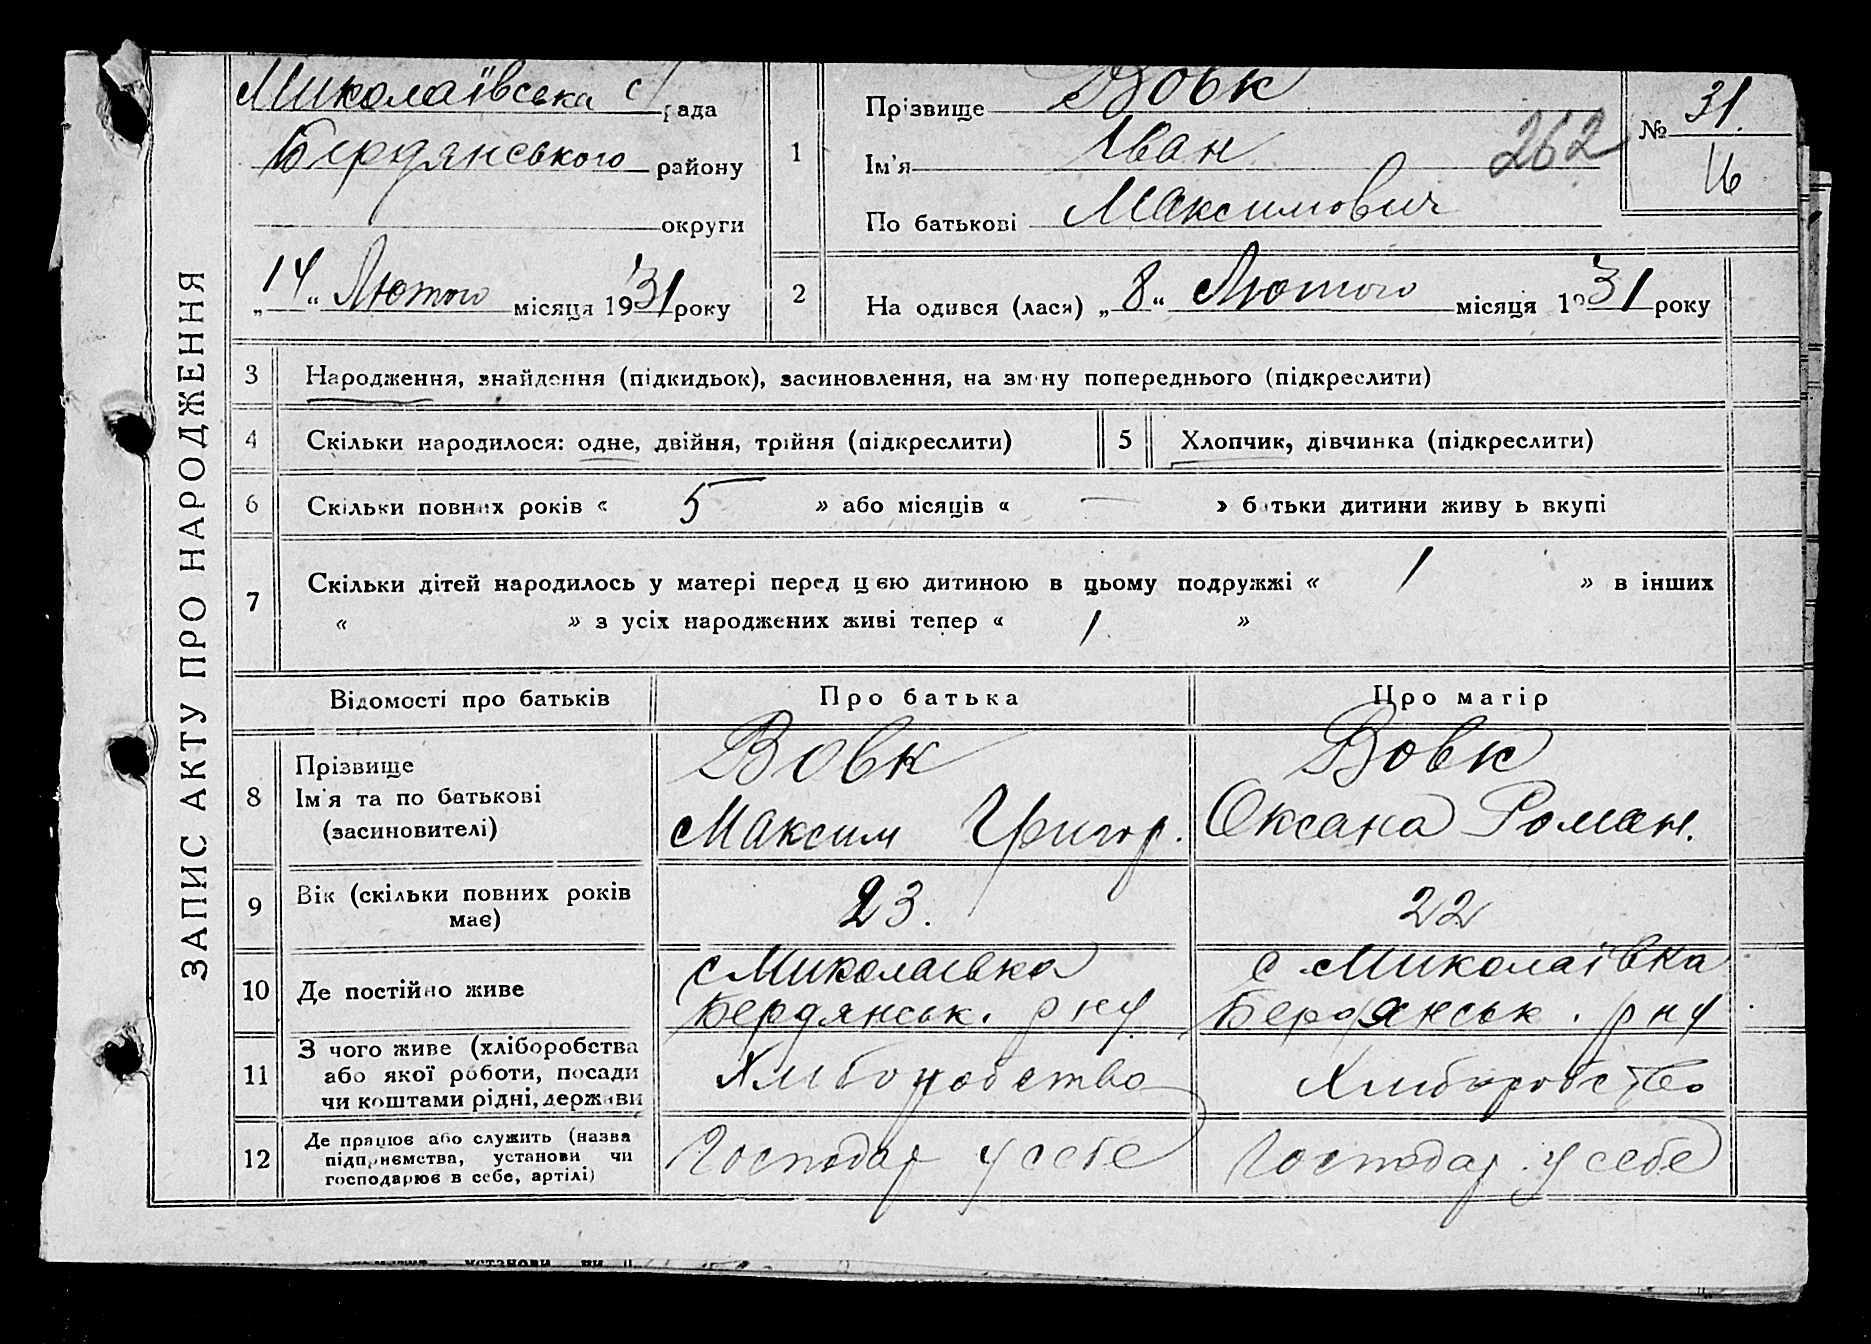 ЗАПИС АКТУ ПРО НАРОДЖЕННЯ
Миколаївська с/рада
Бердянського району
округи
„14“ Лютого місяця 1931 року
1
Прізвище Вовк
Ім'я Іван
По батькові Максимович
262
№ 31.
16
2
На одився (лася) „8“ Лютого місяця 1931 року
3 Народження, знайдення (підкидьок), засиновлення, на зміну попереднього (підкреслити)
4 Скільки народилося: одне, двійня, трійня (підкреслити)
5 Хлопчик, дівчинка (підкреслити)
6 Скільки повних років « 5 » або місяців « — » батьки дитини живу ь вкупі
7 Скільки дітей народилось у матері перед цією дитиною в цьому подружжі « 1 » в інших
« » з усіх народжених живі тепер « 1. »
Відомості про батьків Про батька Про матір
8 Прізвище
Ім'я та по батькові
(засиновителі)
Вовк
Максим Григор.
Вовк
Оксана Роман.
9 Вік (скільки повних років
має)
23.
22
10 Де постійно живе
с Миколаївка
Бердянськ. рну.
с Миколаївка
Бердянськ. рну
11 З чого живе (хліборобства
або якої роботи, посади
чи коштами рідні, держави
Хліборобство
Хліборобство
12 Де працює або служить (назва
підприємства, установи чи
господарює в себе, артілі)
Господар у себе
Господар у себе
установи чи